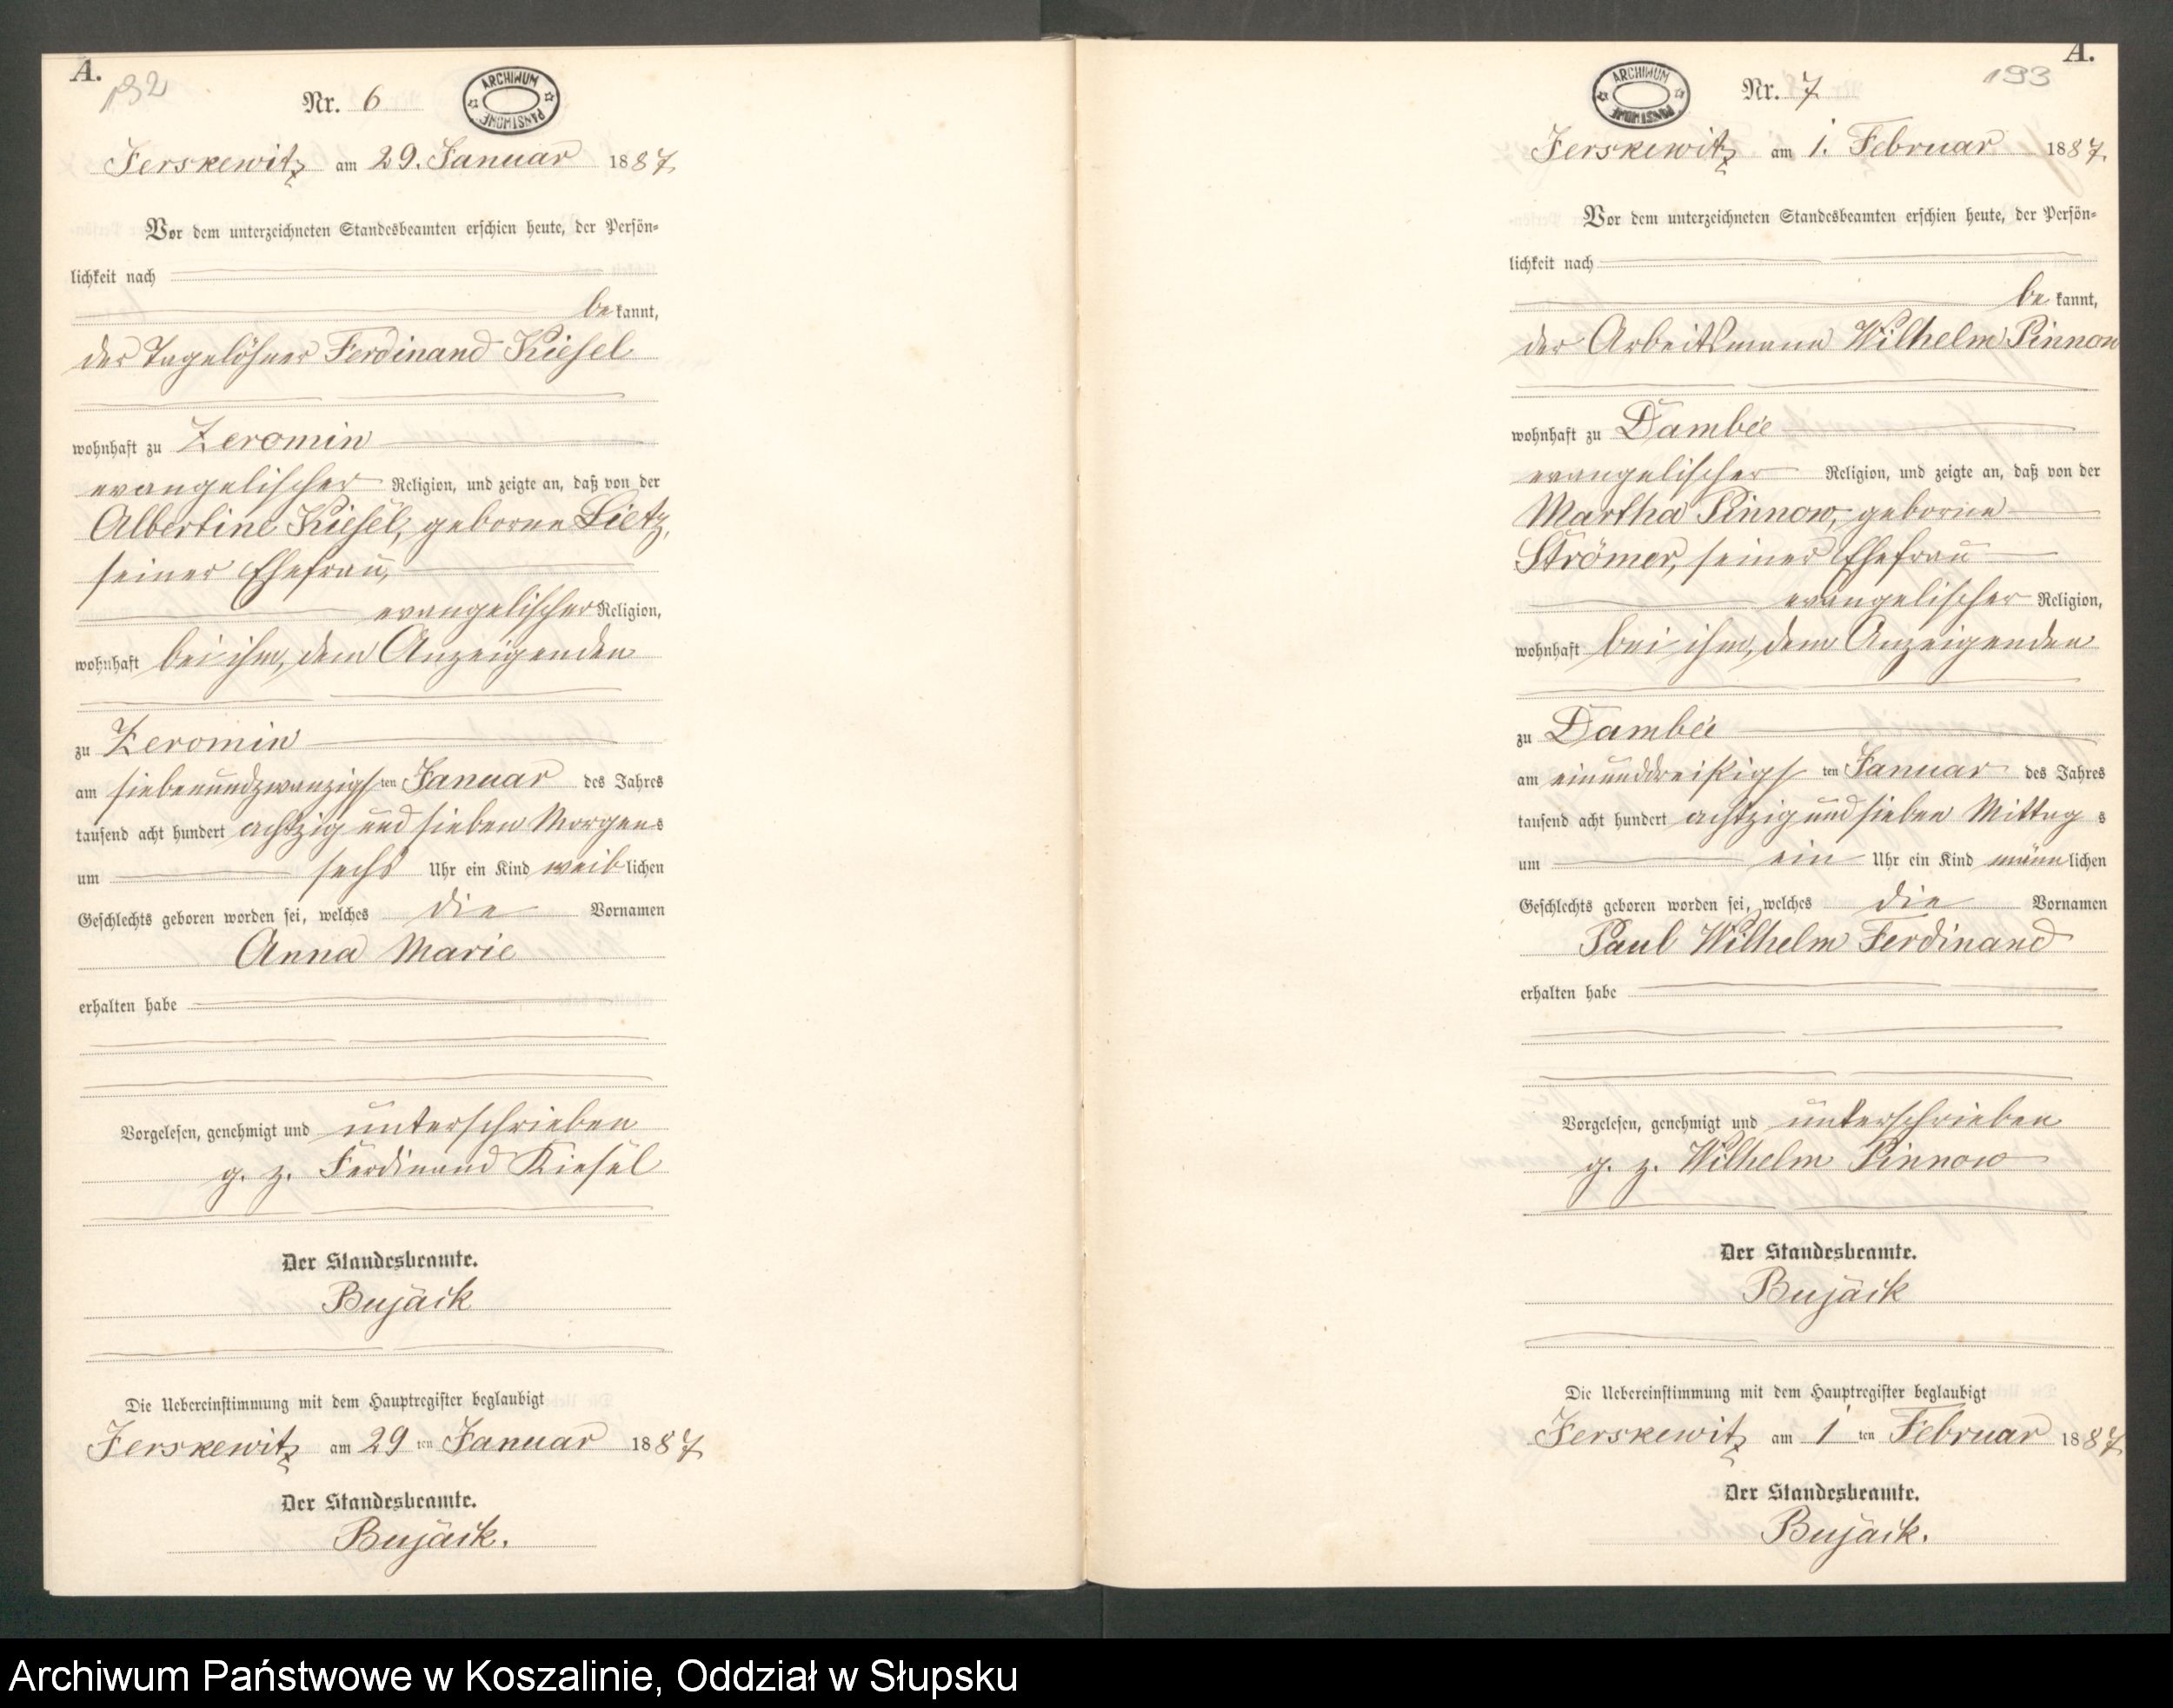 A.
192
Nr. 6
ARCHIWUM PAŃSTWOWE
Jerskewitz am 29. Januar 1887.
Vor dem unterzeichneten Standesbeamten erschien heute, der Persön-
lichkeit nach
be kannt,
der Tagelöhner Ferdinand Kiesel
wohnhaft zu Zeromin
evangelischer Religion, und zeigte an, daß von der
Albertine Kiesel, geborne Lietz,
seiner Ehefrau,
evangelischer Religion,
wohnhaft bei ihm, dem Anzeigenden
zu Zeromin
am siebenundzwanzigsten Januar des Jahres
tausend acht hundert achtzig und sieben Morgens
um sechs Uhr ein Kind weiblichen
Geschlechts geboren worden sei, welches die Vornamen
Anna Marie
erhalten habe
Vorgelesen, genehmigt und unterschrieben
g. z. Ferdinand Kiesel
Der Standesbeamte.
Bujack
Die Uebereinstimmung mit dem Hauptregister beglaubigt
Jerskewitz am 29 ten Januar 1887.
Der Standesbeamte.
Bujack.
A.
193
Nr. 7
ARCHIWUM PAŃSTWOWE
Jerskewitz am 1. Februar 1887.
Vor dem unterzeichneten Standesbeamten erschien heute, der Persön-
lichkeit nach
be kannt,
der Arbeitsmann Wilhelm Pinnow
wohnhaft zu Dambée
evangelischer Religion, und zeigte an, daß von der
Martha Pinnow, geborne
Strömer, seiner Ehefrau
evangelischer Religion,
wohnhaft bei ihm, dem Anzeigenden
zu Dambée
am einunddreißigsten Januar des Jahres
tausend acht hundert achtzig und sieben Mittags
um ein Uhr ein Kind männlichen
Geschlechts geboren worden sei, welches die Vornamen
Paul Wilhelm Ferdinand
erhalten habe
Vorgelesen, genehmigt und unterschrieben
g. z. Wilhelm Pinnow
Der Standesbeamte.
Bujack
Die Uebereinstimmung mit dem Hauptregister beglaubigt
Jerskewitz am 1 ten Februar 1887.
Der Standesbeamte.
Bujack.
Archiwum Państwowe w Koszalinie, Oddział w Słupsku